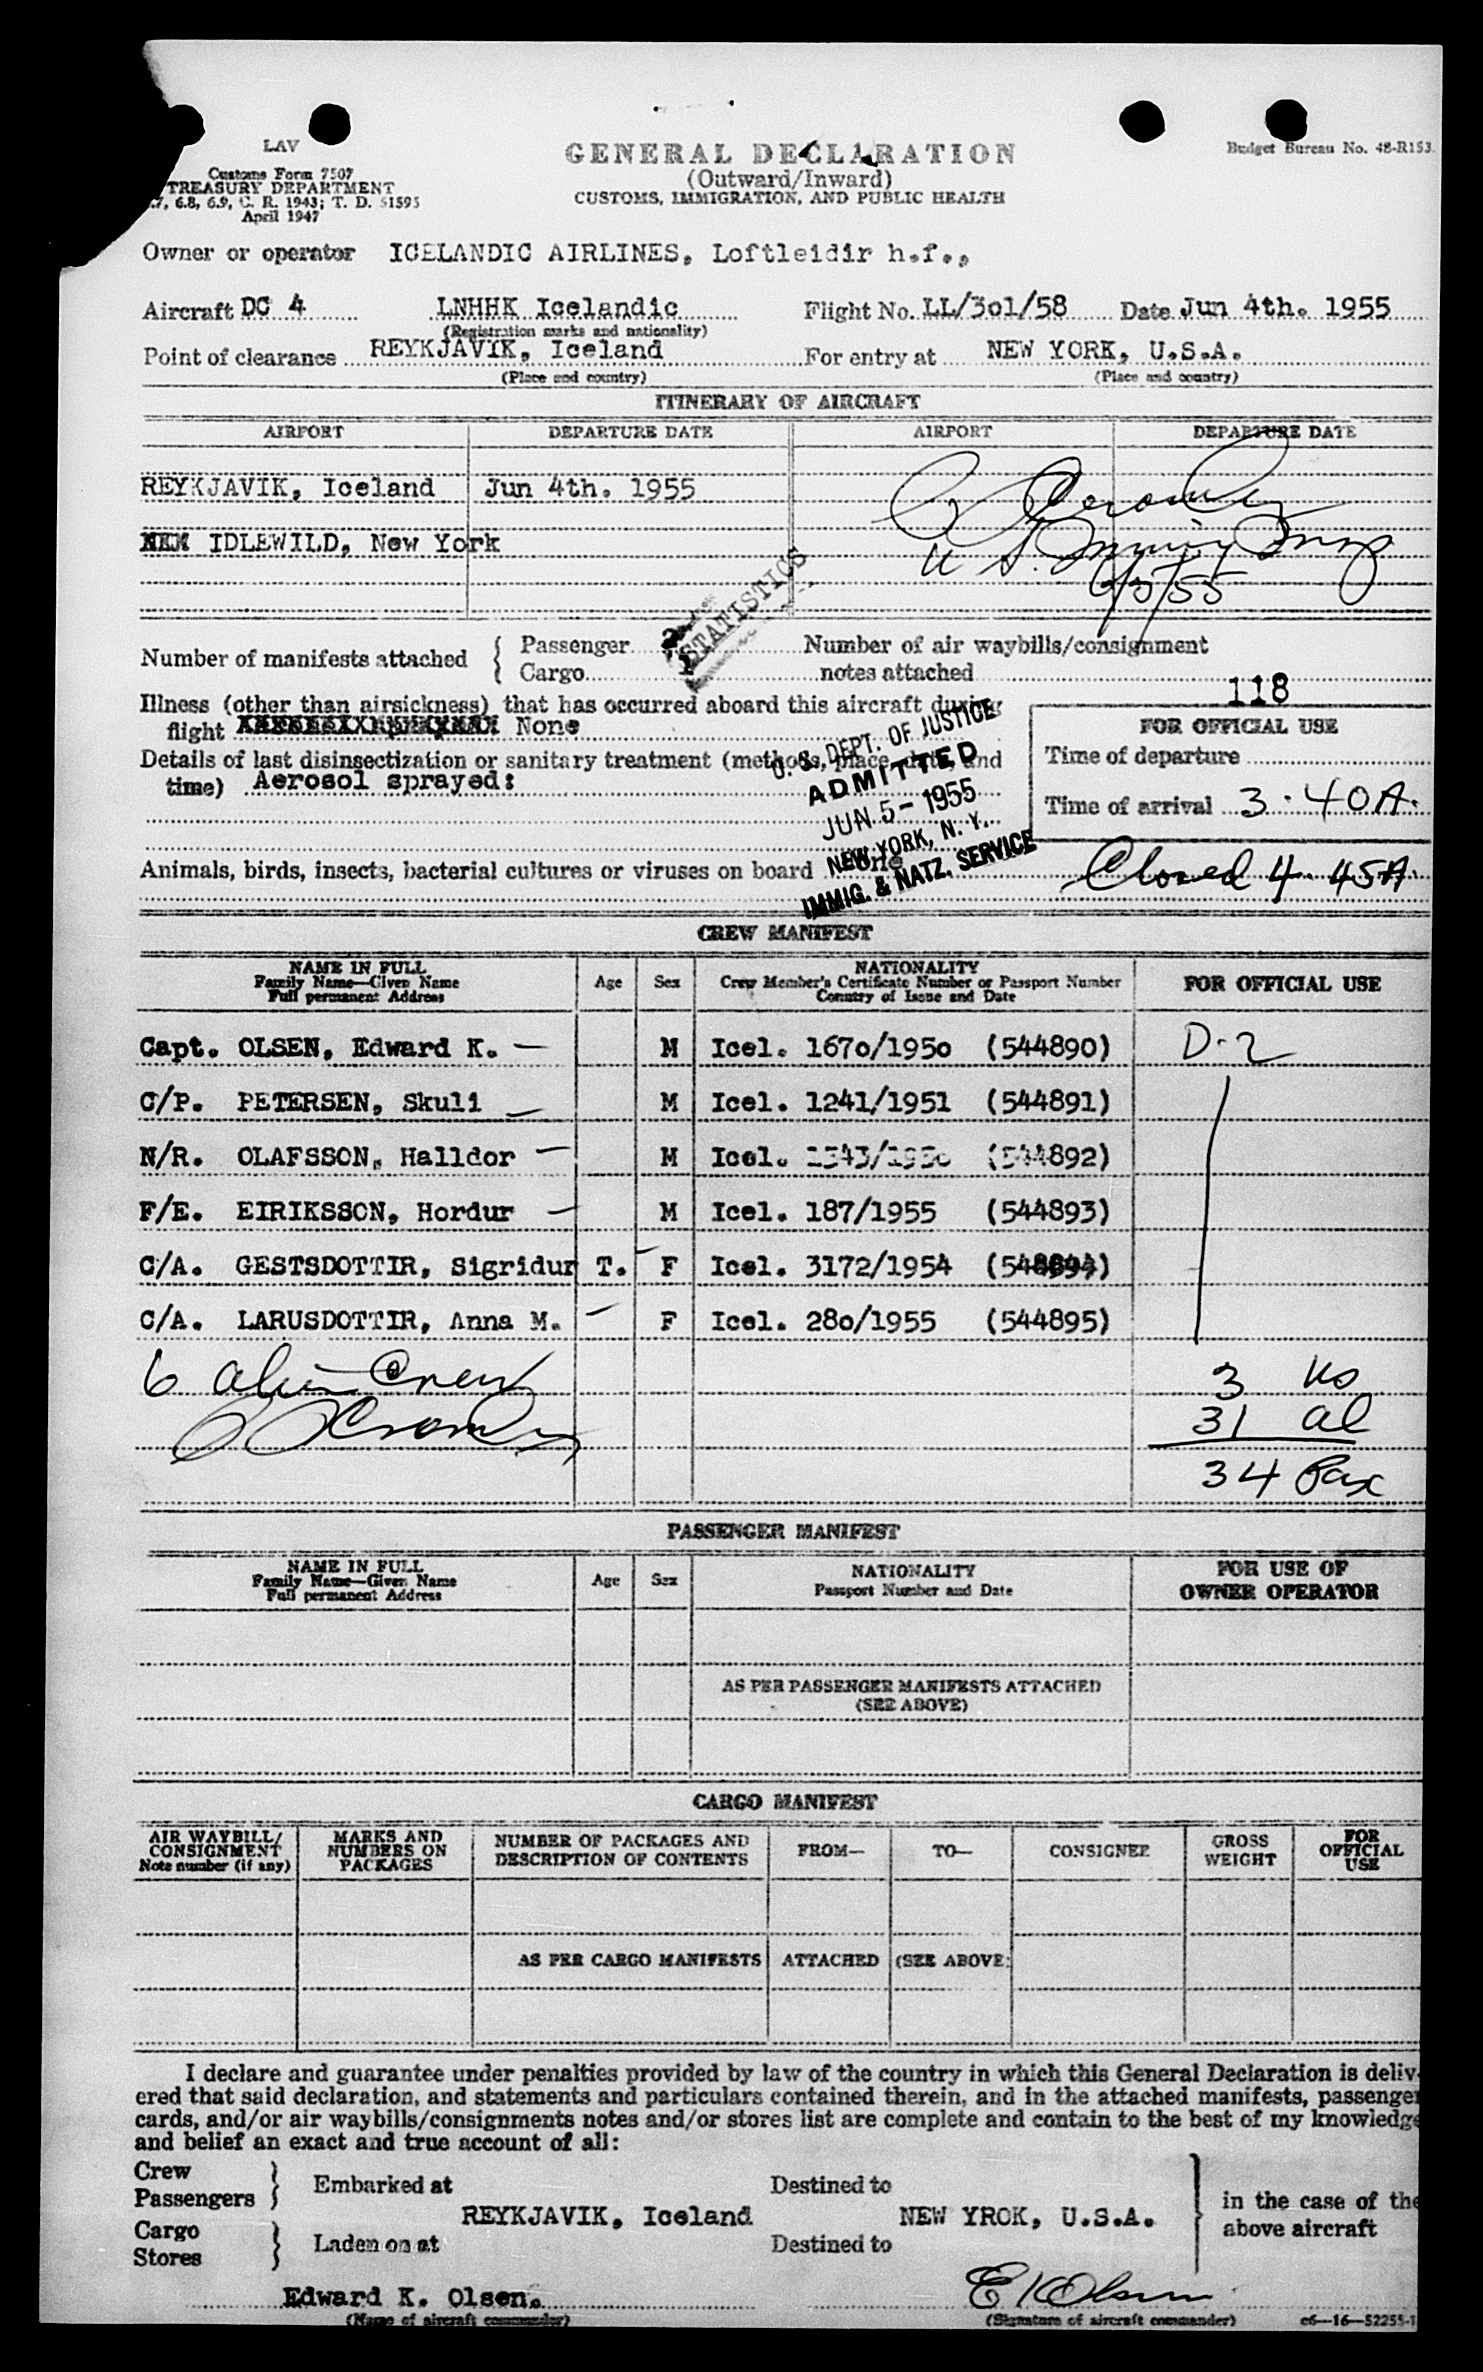 LAV
Customs Form 7507
TREASURY DEPARTMENT
6.8, 6.9, C. R. 1943; T. D. 51595
April 1947
GENERAL DECLARATION
(Outward/Inward)
CUSTOMS, IMMIGRATION, AND PUBLIC HEALTH
Budget Bureau No. 48-R153.
Owner or operator ICELANDIC AIRLINES, Loftleidir h.f.,
Aircraft DC 4 LNHHK Icelandic Flight No. LL/3o1/58 Date Jun 4th. 1955
(Registration marks and nationality)
Point of clearance REYKJAVIK, Iceland For entry at NEW YORK, U.S.A.
(Place and country) (Place and country)
ITINERARY OF AIRCRAFT
AIRPORT DEPARTURE DATE AIRPORT DEPARTURE DATE
REYKJAVIK, Iceland Jun 4th. 1955
IDLEWILD, New York
U S. Immig
6/5/55
STATISTICS
Number of manifests attached { Passenger 2 Number of air waybills/consignment
Cargo 1 notes attached
118
Illness (other than airsickness) that has occurred aboard this aircraft during
flight None
Details of last disinsectization or sanitary treatment (methods, place, date, and
time) Aerosol sprayed:
U. S. DEPT. OF JUSTICE
ADMITTED
JUN 5- 1955
NEW YORK, N. Y.
IMMIG. & NATZ. SERVICE
FOR OFFICIAL USE
Time of departure
Time of arrival 3.40A.
Animals, birds, insects, bacterial cultures or viruses on board None
Closed 4.45A.
CREW MANIFEST
NAME IN FULL
Family Name—Given Name
Full permanent Address
Age
Sex
NATIONALITY
Crew Member's Certificate Number or Passport Number
Country of Issue and Date
FOR OFFICIAL USE
Capt. OLSEN, Edward K. — M Icel. 167o/195o (544890) D-2
C/P. PETERSEN, Skuli — M Icel. 1241/1951 (544891)
N/R. OLAFSSON, Halldor — M Icel. 1543/195o (544892)
F/E. EIRIKSSON, Hordur — M Icel. 187/1955 (544893)
C/A. GESTSDOTTIR, Sigridur T. — F Icel. 3172/1954 (544894)
C/A. LARUSDOTTIR, Anna M. — F Icel. 28o/1955 (544895)
6 alien Crew
3 US
31 al
34 Pax
PASSENGER MANIFEST
NAME IN FULL
Family Name—Given Name
Full permanent Address
Age
Sex
NATIONALITY
Passport Number and Date
FOR USE OF
OWNER OPERATOR
AS PER PASSENGER MANIFESTS ATTACHED
(SEE ABOVE)
CARGO MANIFEST
AIR WAYBILL/
CONSIGNMENT
Note number (if any)
MARKS AND
NUMBERS ON
PACKAGES
NUMBER OF PACKAGES AND
DESCRIPTION OF CONTENTS
FROM—
TO—
CONSIGNEE
GROSS
WEIGHT
FOR
OFFICIAL
USE
AS PER CARGO MANIFESTS ATTACHED (SEE ABOVE)
I declare and guarantee under penalties provided by law of the country in which this General Declaration is deliv-
ered that said declaration, and statements and particulars contained therein, and in the attached manifests, passenger
cards, and/or air waybills/consignments notes and/or stores list are complete and contain to the best of my knowledge
and belief an exact and true account of all:
Crew
Passengers } Embarked at Destined to
REYKJAVIK, Iceland NEW YROK, U.S.A.
in the case of the
above aircraft
Cargo
Stores } Laden on at Destined to
Edward K. Olsen. E K Olsen
(Name of aircraft commander) (Signature of aircraft commander) c6—16—52255-1